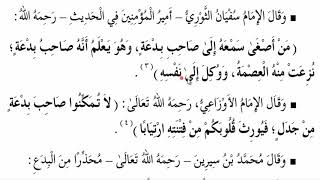 ▪ وَقَالَ الإِمَامُ سُفْيَانُ الثَّوْرِيُّ – أَمِيرُ الْمُؤْمِنِينَ فِي الْحَدِيثِ – رَحِمَهُ اللهُ:
( مَنْ أَصْغَى سَمْعَهُ إِلَىٰ صَاحِبِ بِدْعَةٍ، وَهُوَ يَعْلَمُ أَنَّهُ صَاحِبُ بِدْعَةٍ؛
نُزِعَتْ مِنْهُ الْعِصْمَةُ، وَوُكِلَ إِلَىٰ نَفْسِهِ )(٣).
▪ وَقَالَ الإِمَامُ الأَوْزَاعِيُّ، رَحِمَهُ اللهُ تَعَالَىٰ: ( لَا تُمَكِّنُوا صَاحِبَ بِدْعَةٍ
مِنْ جَدَلٍ؛ فَيُورِثَ قُلُوبَكُمْ مِنْ فِتْنَتِهِ ارْتِيَابًا )(٤).
▪ وَقَالَ مُحَمَّدُ بْنُ سِيرِينَ – رَحِمَهُ اللهُ تَعَالَىٰ – مُحَذِّرًا مِنَ الْبِدَعِ: